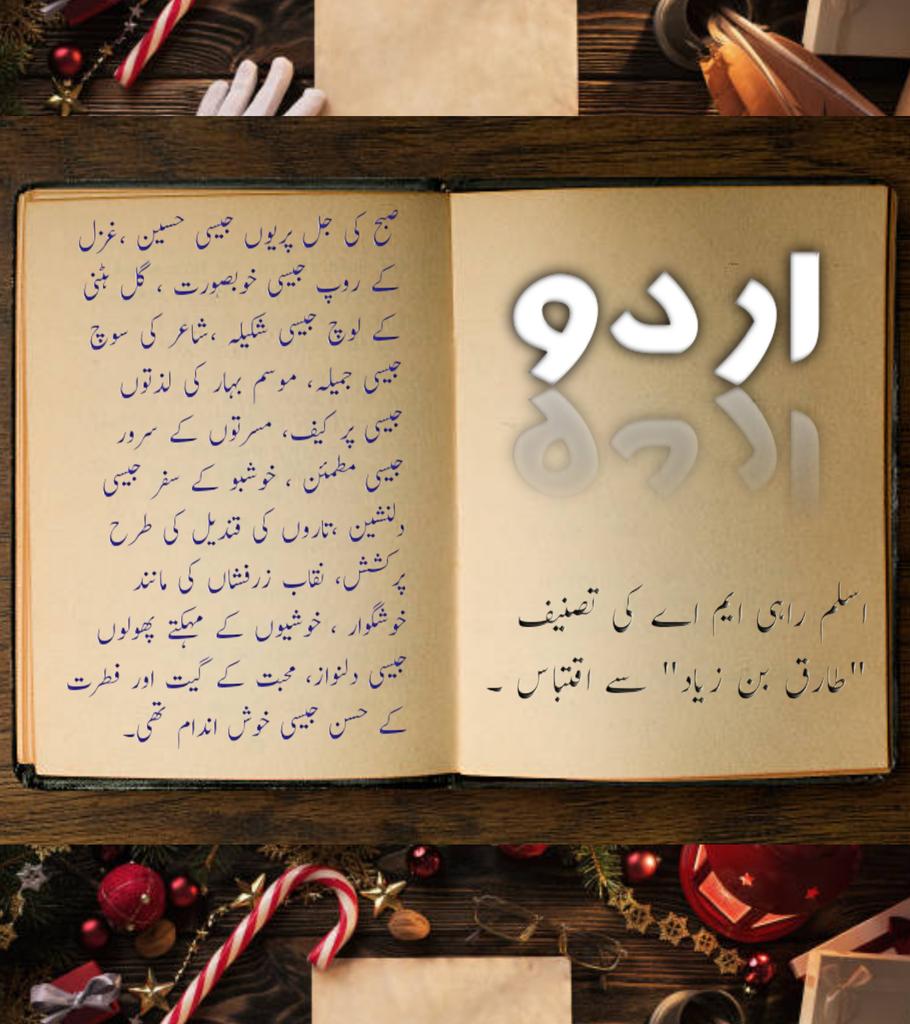 اردو
اسلم راہی ایم اے کی تصنیف
"طارق بن زیاد" سے اقتباس ۔
صبح کی جل پریوں جیسی حسین ،غزل
کے روپ جیسی خوبصورت ، گل بٹنی
کے لوچ جیسی شکیلہ ،شاعر کی سوچ
جیسی جمیلہ، موسم بہار کی لذتوں
جیسی پر کیف، مسرتوں کے سرور
جیسی مطمئن ، خوشبو کے سفر جیسی
دلنشین ،تاروں کی قندیل کی طرح
پرکشش، نقاب زرفشاں کی مانند
خوشگوار ، خوشیوں کے مہکتے پھولوں
جیسی دلنواز، محبت کے گیت اور فطرت
کے حسن جیسی خوش اندام تھی۔